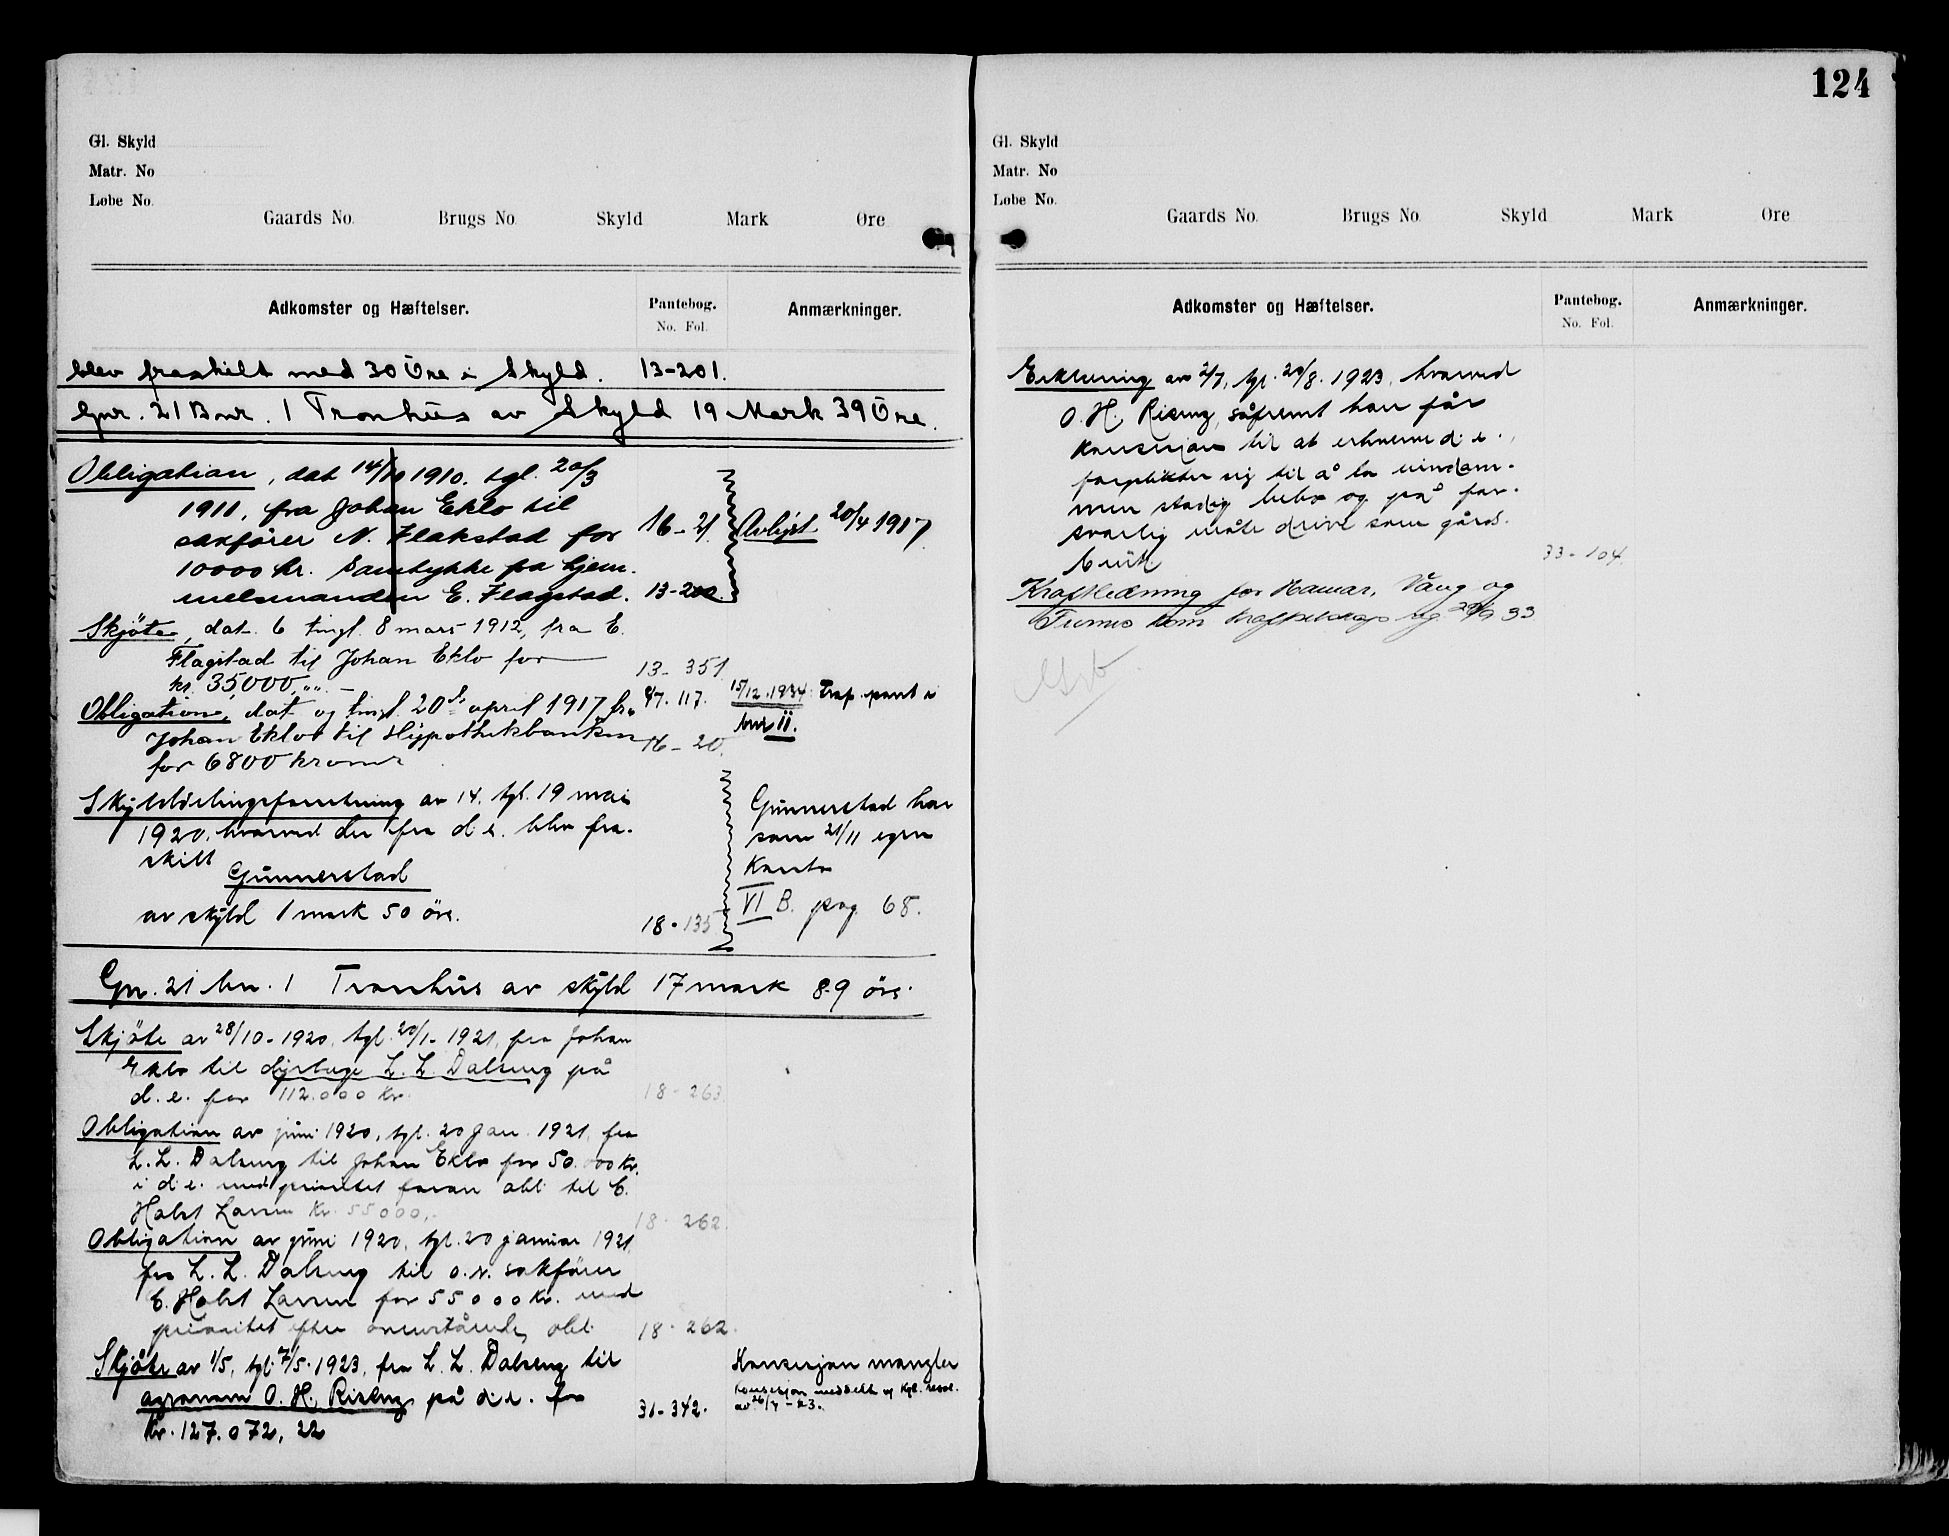 Gl. Skyld
Matr. No
Løbe No.
Gaards No. Brugs No. Skyld Mark Øre
Adkomster og Hæftelser. Pantebog. No. Fol. Anmærkninger.
blev fraskilt med 30 Øre i Skyld. 13-201.
Gnr. 21 Bnr. 1 Tronhus av Skyld 19 Mark 39 Øre.
Obligation, dat 14/10 1910. tgl. 20/3
1911, fra Johan Eklo til
sakfører N. Flakstad for 16-21 Avlyst 20/4 1917
10000 kr. Samtykke fra hjem-
melsmanden E. Flagstad. 13-200.
Skjøte, dat. 6 tingl. 8 mars 1912, fra E.
Flagstad til Johan Eklo for
kr. 35,000,"". — 13-351
Obligation, dat og tingl. 20de april 1917 fra 47.117. 15/12.1934. Frap. pant i
Johan Eklo til Hypothekbanken 16-20. bnr 11.
for 6800 kroner
Skylddelingsforretning av 14. tgl. 19 mai
1920, hvorved der fra d.e. blev fra-
skilt
Gunnerstad
av skyld 1 mark 50 øre. 18-135
Gunnerstad har
som 21/11 egen
Konto
VI B. pag. 68.
Gnr. 21 bnr. 1 Tronhus av skyld 17 mark 89 øre.
Skjøte av 28/10-1920, tgl. 20/1-1921, fra Johan
Eklo til dyrlæge L. L. Dalseng på
d.e. for 112.000 kr. 18-263.
Obligation av juni 1920, tgl. 20 Jan. 1921, fra
L. L. Dalseng til Johan Eklo for 50.000 kr.
i d.e. med prioritet foran obl. til C.
Holst Larsen Kr. 55000,- 18-262.
Obligation av juni 1920, tgl. 20 januar 1921
fra L. L. Dalseng til o.r. sakfører
C. Holst Larsen for 55000 kr. med
prioritet efter ovenstående obl. 18-262.
Skjøte av 1/5, tgl. 7/5.1923, fra L. L. Dalseng til Konsesjon mangler
agronom O. H. Riseng på d.e. for 31-342. Konsesjon meddelt v. kgl. resol.
Kr. 127.072, 22 av 26/7-23.
124
Gl. Skyld
Matr. No
Løbe No.
Gaards No. Brugs No. Skyld Mark Øre
Adkomster og Hæftelser. Pantebog. No. Fol. Anmærkninger.
Erklæring av 2/7, tgl. 20/8. 1923, hvorved
O. H. Riseng, såfremt han får
konsesjon til at erhverve d.e.,
forplikter sig til å la eiendom-
men stadig bebo og på for-
svarlig måte drive som gårds-
bruk. 33-104.
Kraftledning for Hamar, Vang og
Furnes kom. kraftselskap